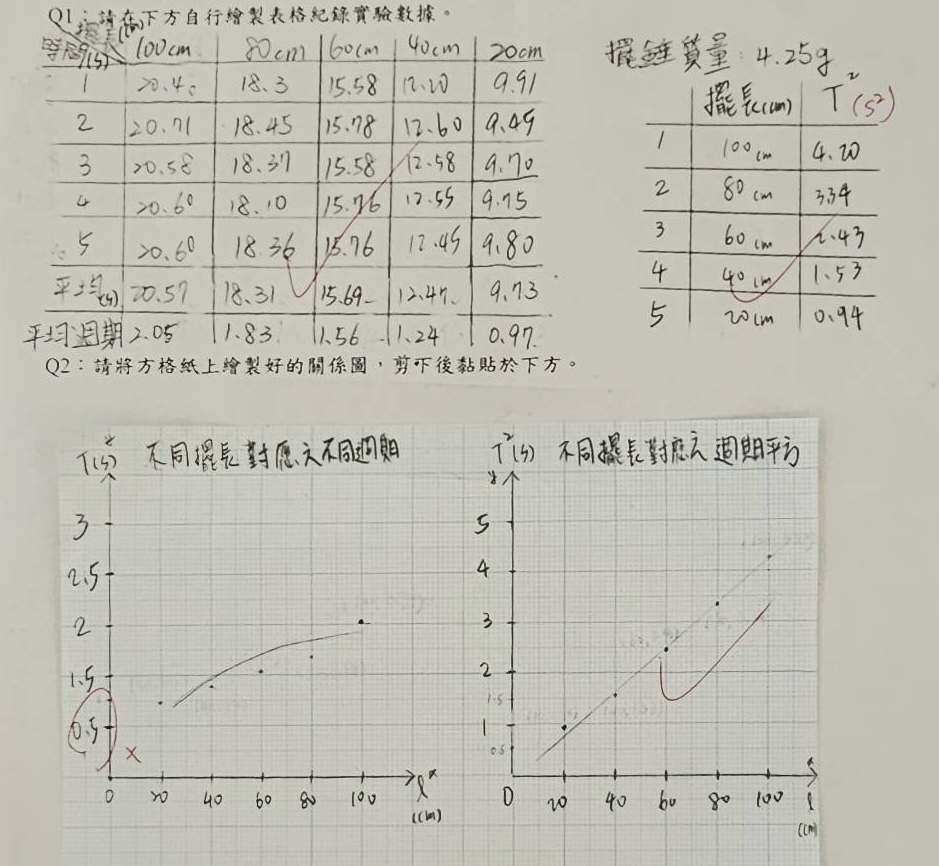 Q1：請在下方自行繪製表格紀錄實驗數據。
擺長(cm)
時間(s) 100cm 80cm 60cm 40cm 20cm
1 20.40 18.3 15.58 12.20 9.91
2 20.71 18.45 15.78 12.60 9.49
3 20.58 18.37 15.58 12.58 9.70
4 20.60 18.10 15.76 12.55 9.75
5 20.60 18.36 15.76 12.45 9.80
平均(s) 20.57 18.31 15.69 12.47 9.73
平均週期 2.05 1.83 1.56 1.24 0.97
擺錘質量：4.25g
擺長(cm) T² (s²)
1 100cm 4.20
2 80cm 3.34
3 60cm 2.43
4 40cm 1.53
5 20cm 0.94
Q2：請將方格紙上繪製好的關係圖，剪下後黏貼於下方。
T(s) 不同擺長對應之不同週期
3
2.5
2
1.5
0.5
0 20 40 60 80 100 l x
(cm)
T²(s) 不同擺長對應之週期平方
y
5
4
3
2
1.5
1
0.5
0 20 40 60 80 100 l
x
(cm)